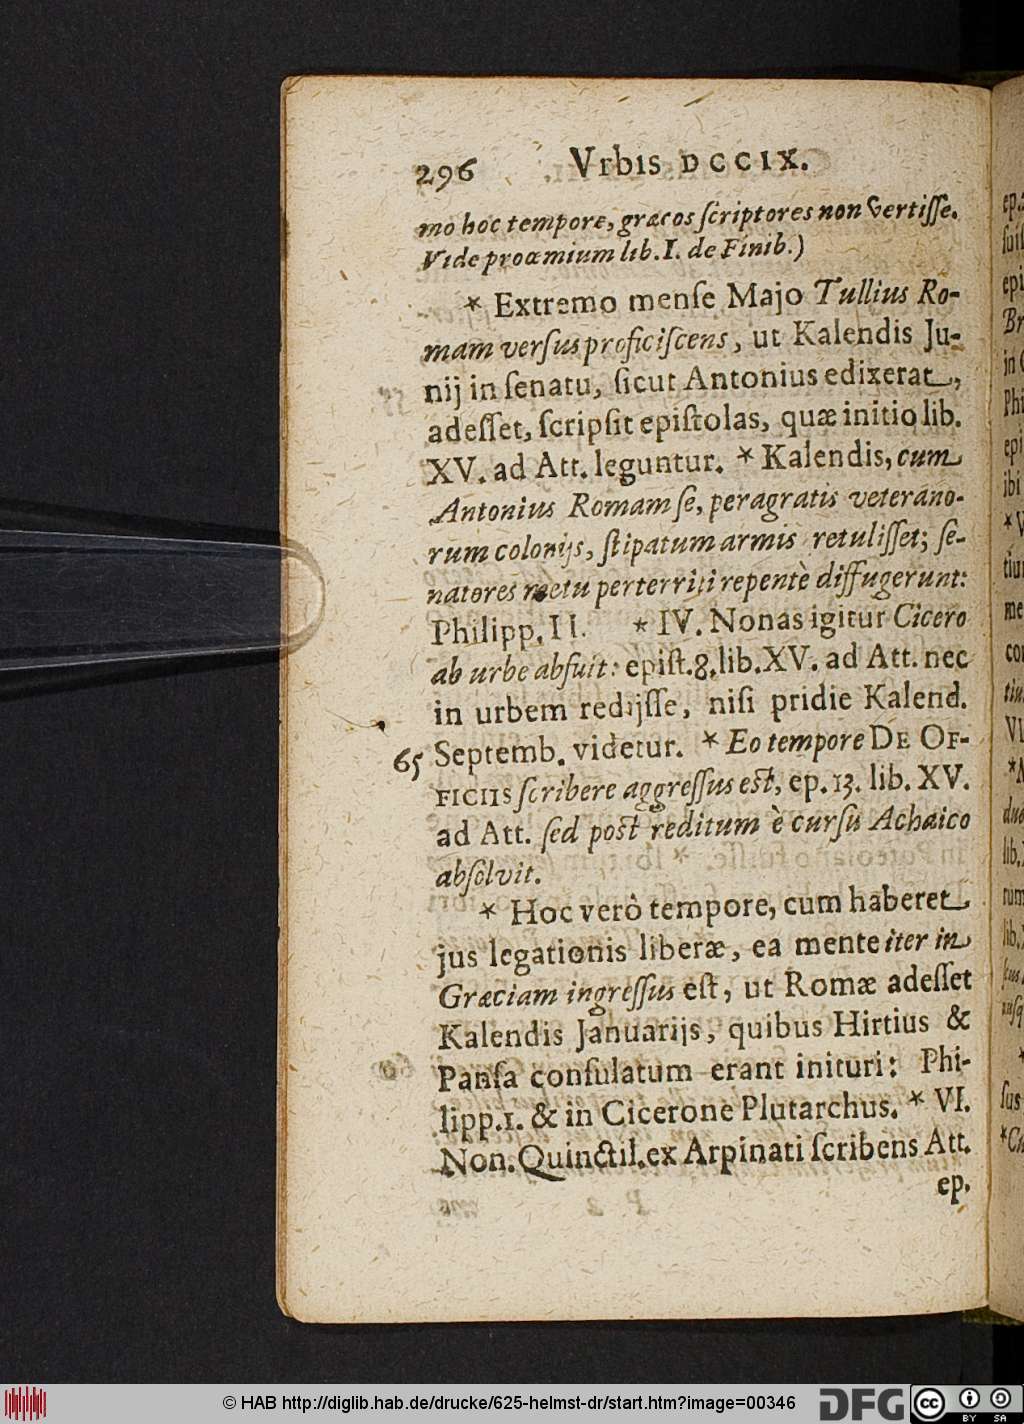 296 Vrbis DCCIX.
mo hoc tempore, græcos ſcriptores non vertiſſe.
Vide proœmium lib. I. de Finib.)
* Extremo menſe Majo Tullius Ro-
mam verſus proficiſcens, ut Kalendis Ju-
nij in ſenatu, ſicut Antonius edixerat,
adeſſet, ſcripſit epiſtolas, quæ initio lib.
XV. ad Att. leguntur. * Kalendis, cum
Antonius Romam ſe, peragratis veterano-
rum colonijs, ſtipatum armis retuliſſet; ſe-
natores metu perterriti repentè diffugerunt:
Philipp. II. * IV. Nonas igitur Cicero
ab urbe abfuit: epiſt. 8. lib. XV. ad Att. nec
in urbem redijſſe, niſi pridie Kalend.
65 Septemb. videtur. * Eo tempore DE OF-
FICIIS ſcribere aggreſſus eſt, ep. 13. lib. XV.
ad Att. ſed poſt reditum è curſu Achaico
abſolvit.
* Hoc verò tempore, cum haberet
jus legationis liberæ, ea mente iter in
Græciam ingreſſus eſt, ut Romæ adeſſet
Kalendis Januarijs, quibus Hirtius &
Panſa conſulatum erant inituri: Phi-
lipp. 1. & in Cicerone Plutarchus. * VI.
Non. Quinctil. ex Arpinati ſcribens Att.
ep.
© HAB http://diglib.hab.de/drucke/625-helmst-dr/start.htm?image=00346
DFG
cc BY SA